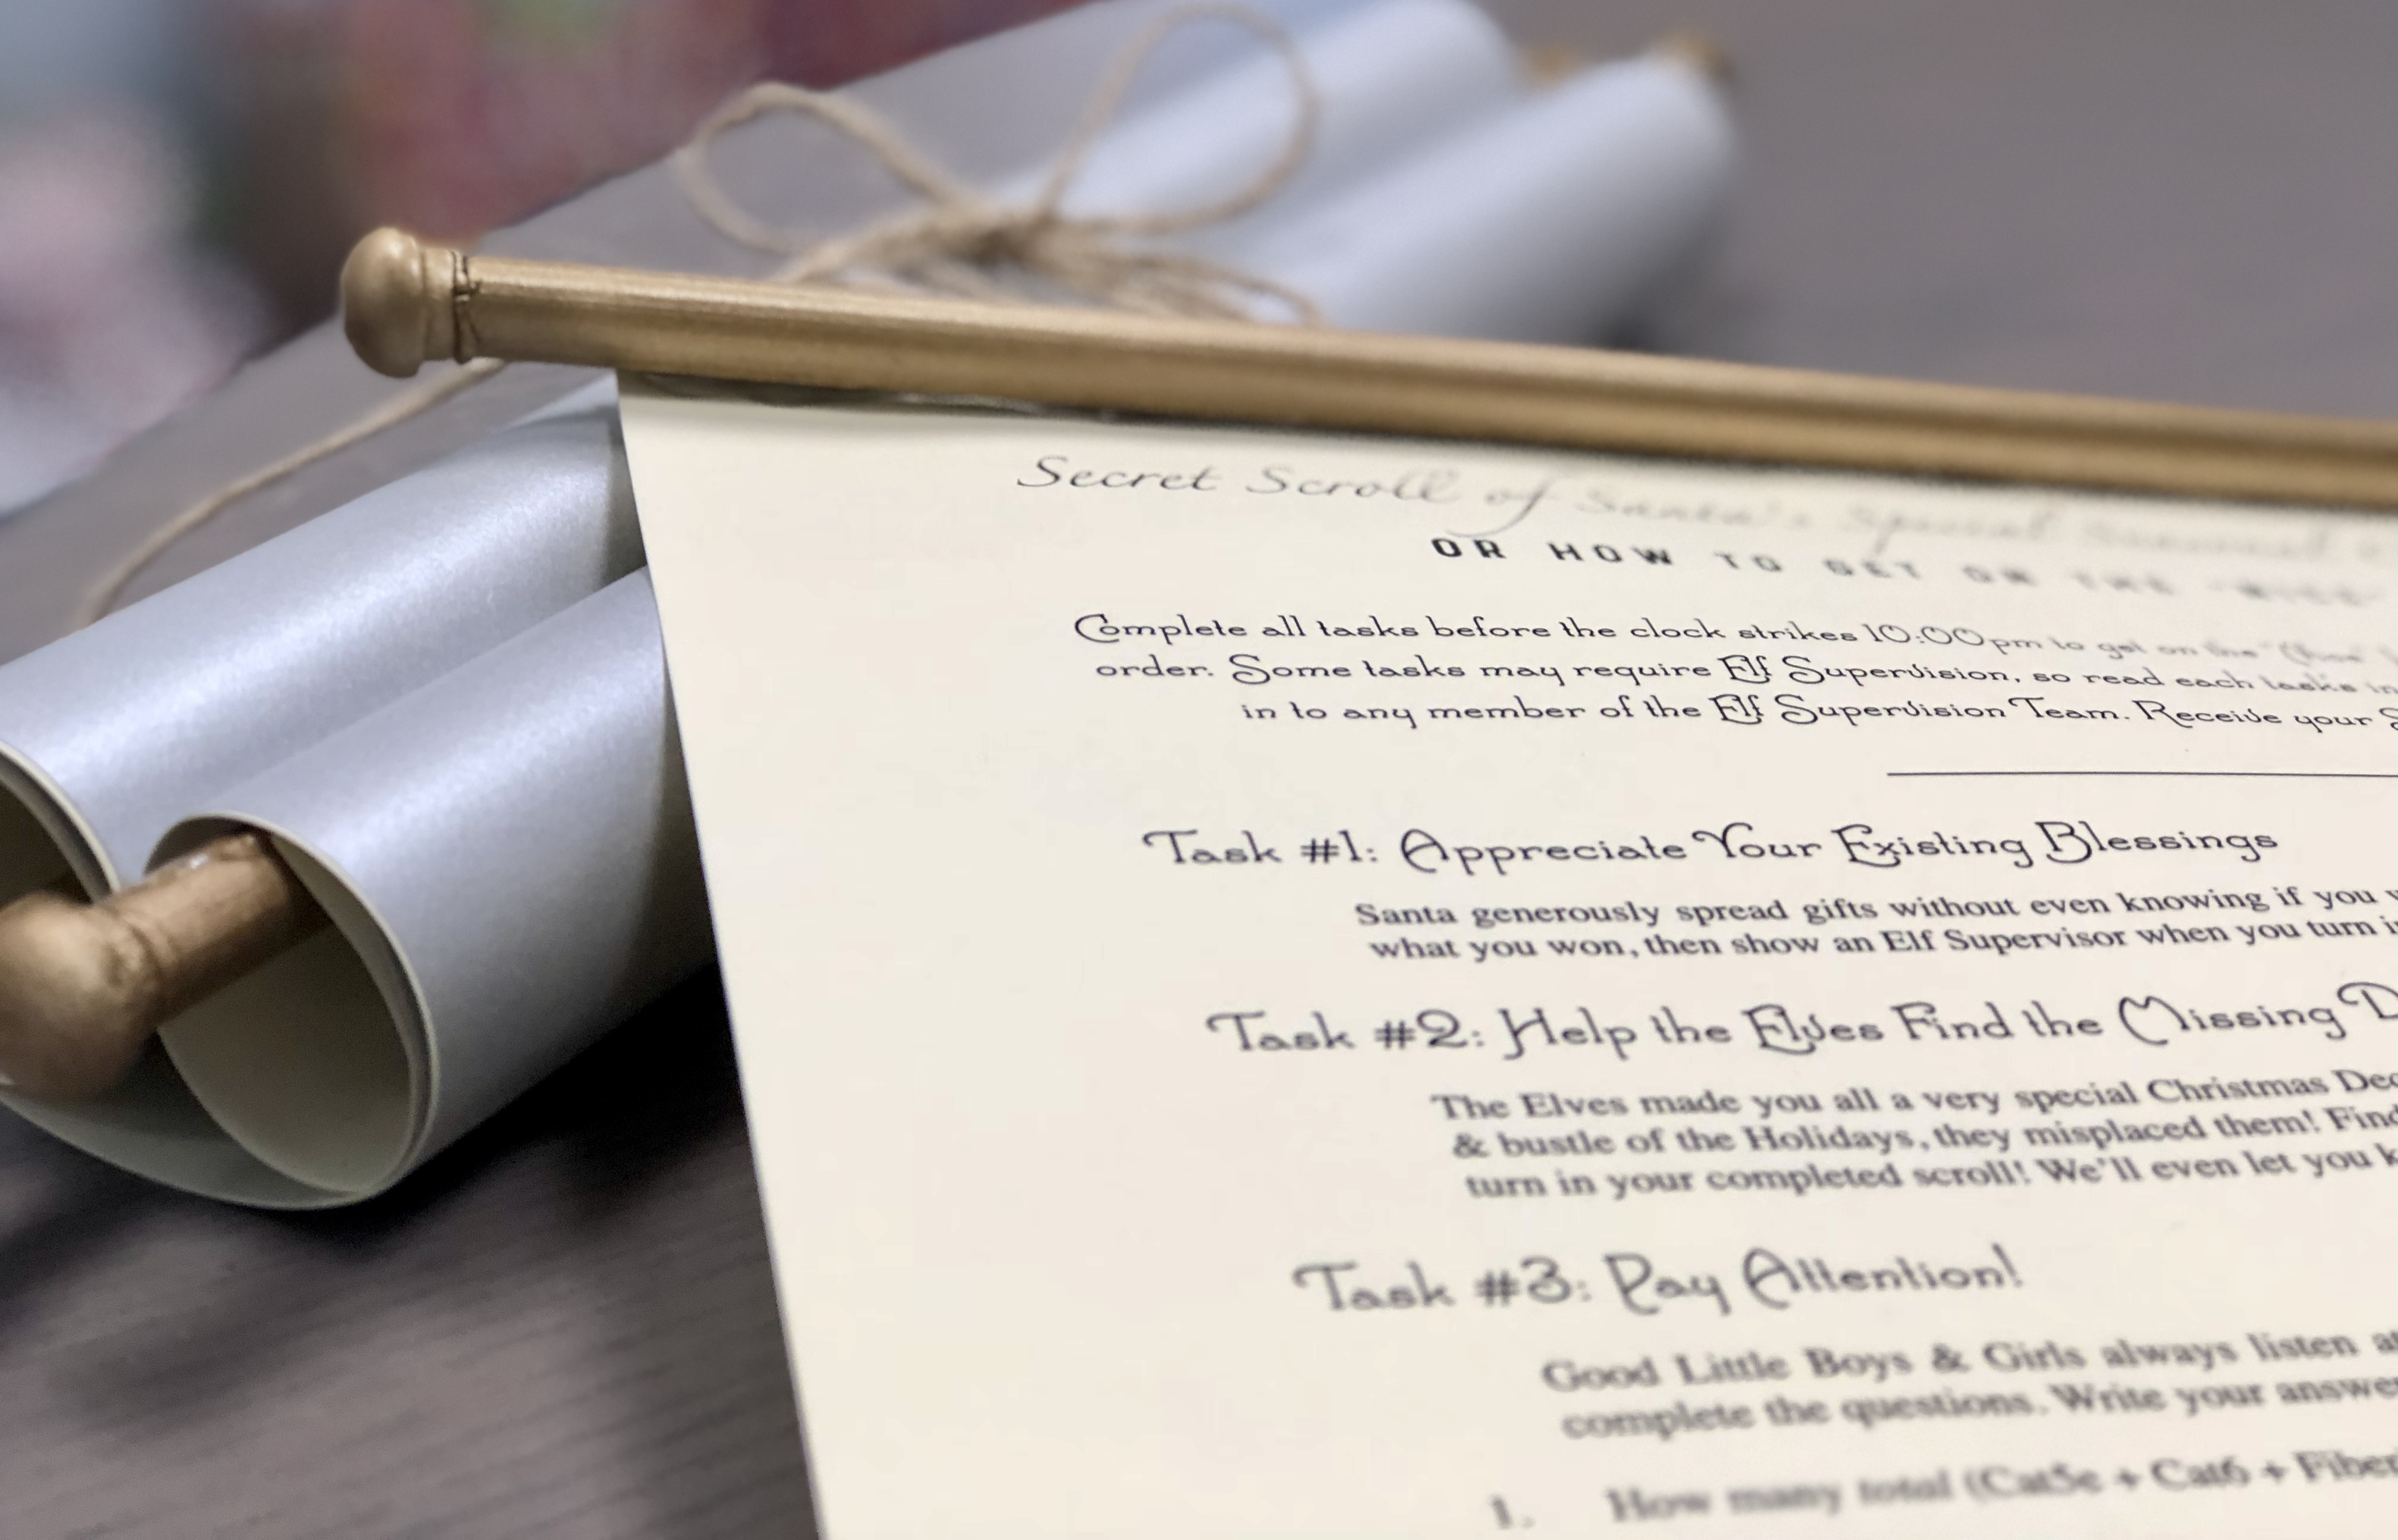 Secret Scroll of Santa's Special
OR HOW TO GET ON THE
Complete all tasks before the clock strikes 10:00pm to get on the
order. Some tasks may require Elf Supervision, so read each tasks in
in to any member of the Elf Supervision Team. Receive your
Task #1: Appreciate Your Existing Blessings
Santa generously spread gifts without even knowing if you
what you won, then show an Elf Supervisor when you turn
Task #2: Help the Elves Find the Missing
The Elves made you all a very special Christmas
& bustle of the Holidays, they misplaced them! Find
turn in your completed scroll! We'll even let you
Task #3: Pay Attention!
Good Little Boys & Girls always listen
complete the questions. Write your
1. How many total (Cat5e + Cat6 + Fiber